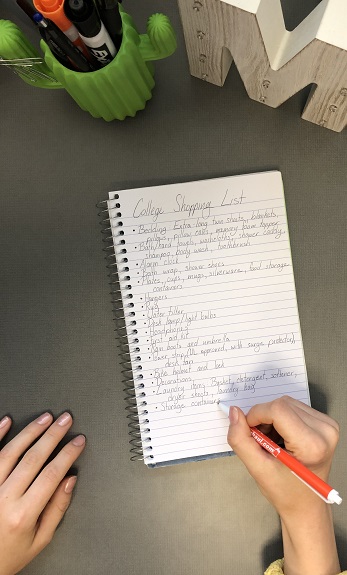 College Shopping List
• Bedding: Extra long twin sheets, blankets,
pillows, pillow cases, memory foam topper
• Bath/hand towels, washcloths, shower caddy,
shampoo, body wash, toothbrush
• Alarm clock
• Bath wrap, shower shoes
• Plates, cups, mugs, silverware, food storage
containers
• Hangers
• Rug
• Water filter
• Desk lamp/light bulbs
• Headphones
• First aid kit
• Rain boots and umbrella
• Power strip (UL approved, with surge protector),
desk fan
• Bike, helmet and lock
• Decorations
• Laundry items: detergent, softener,
dryer sheets, laundry bag
• Storage container